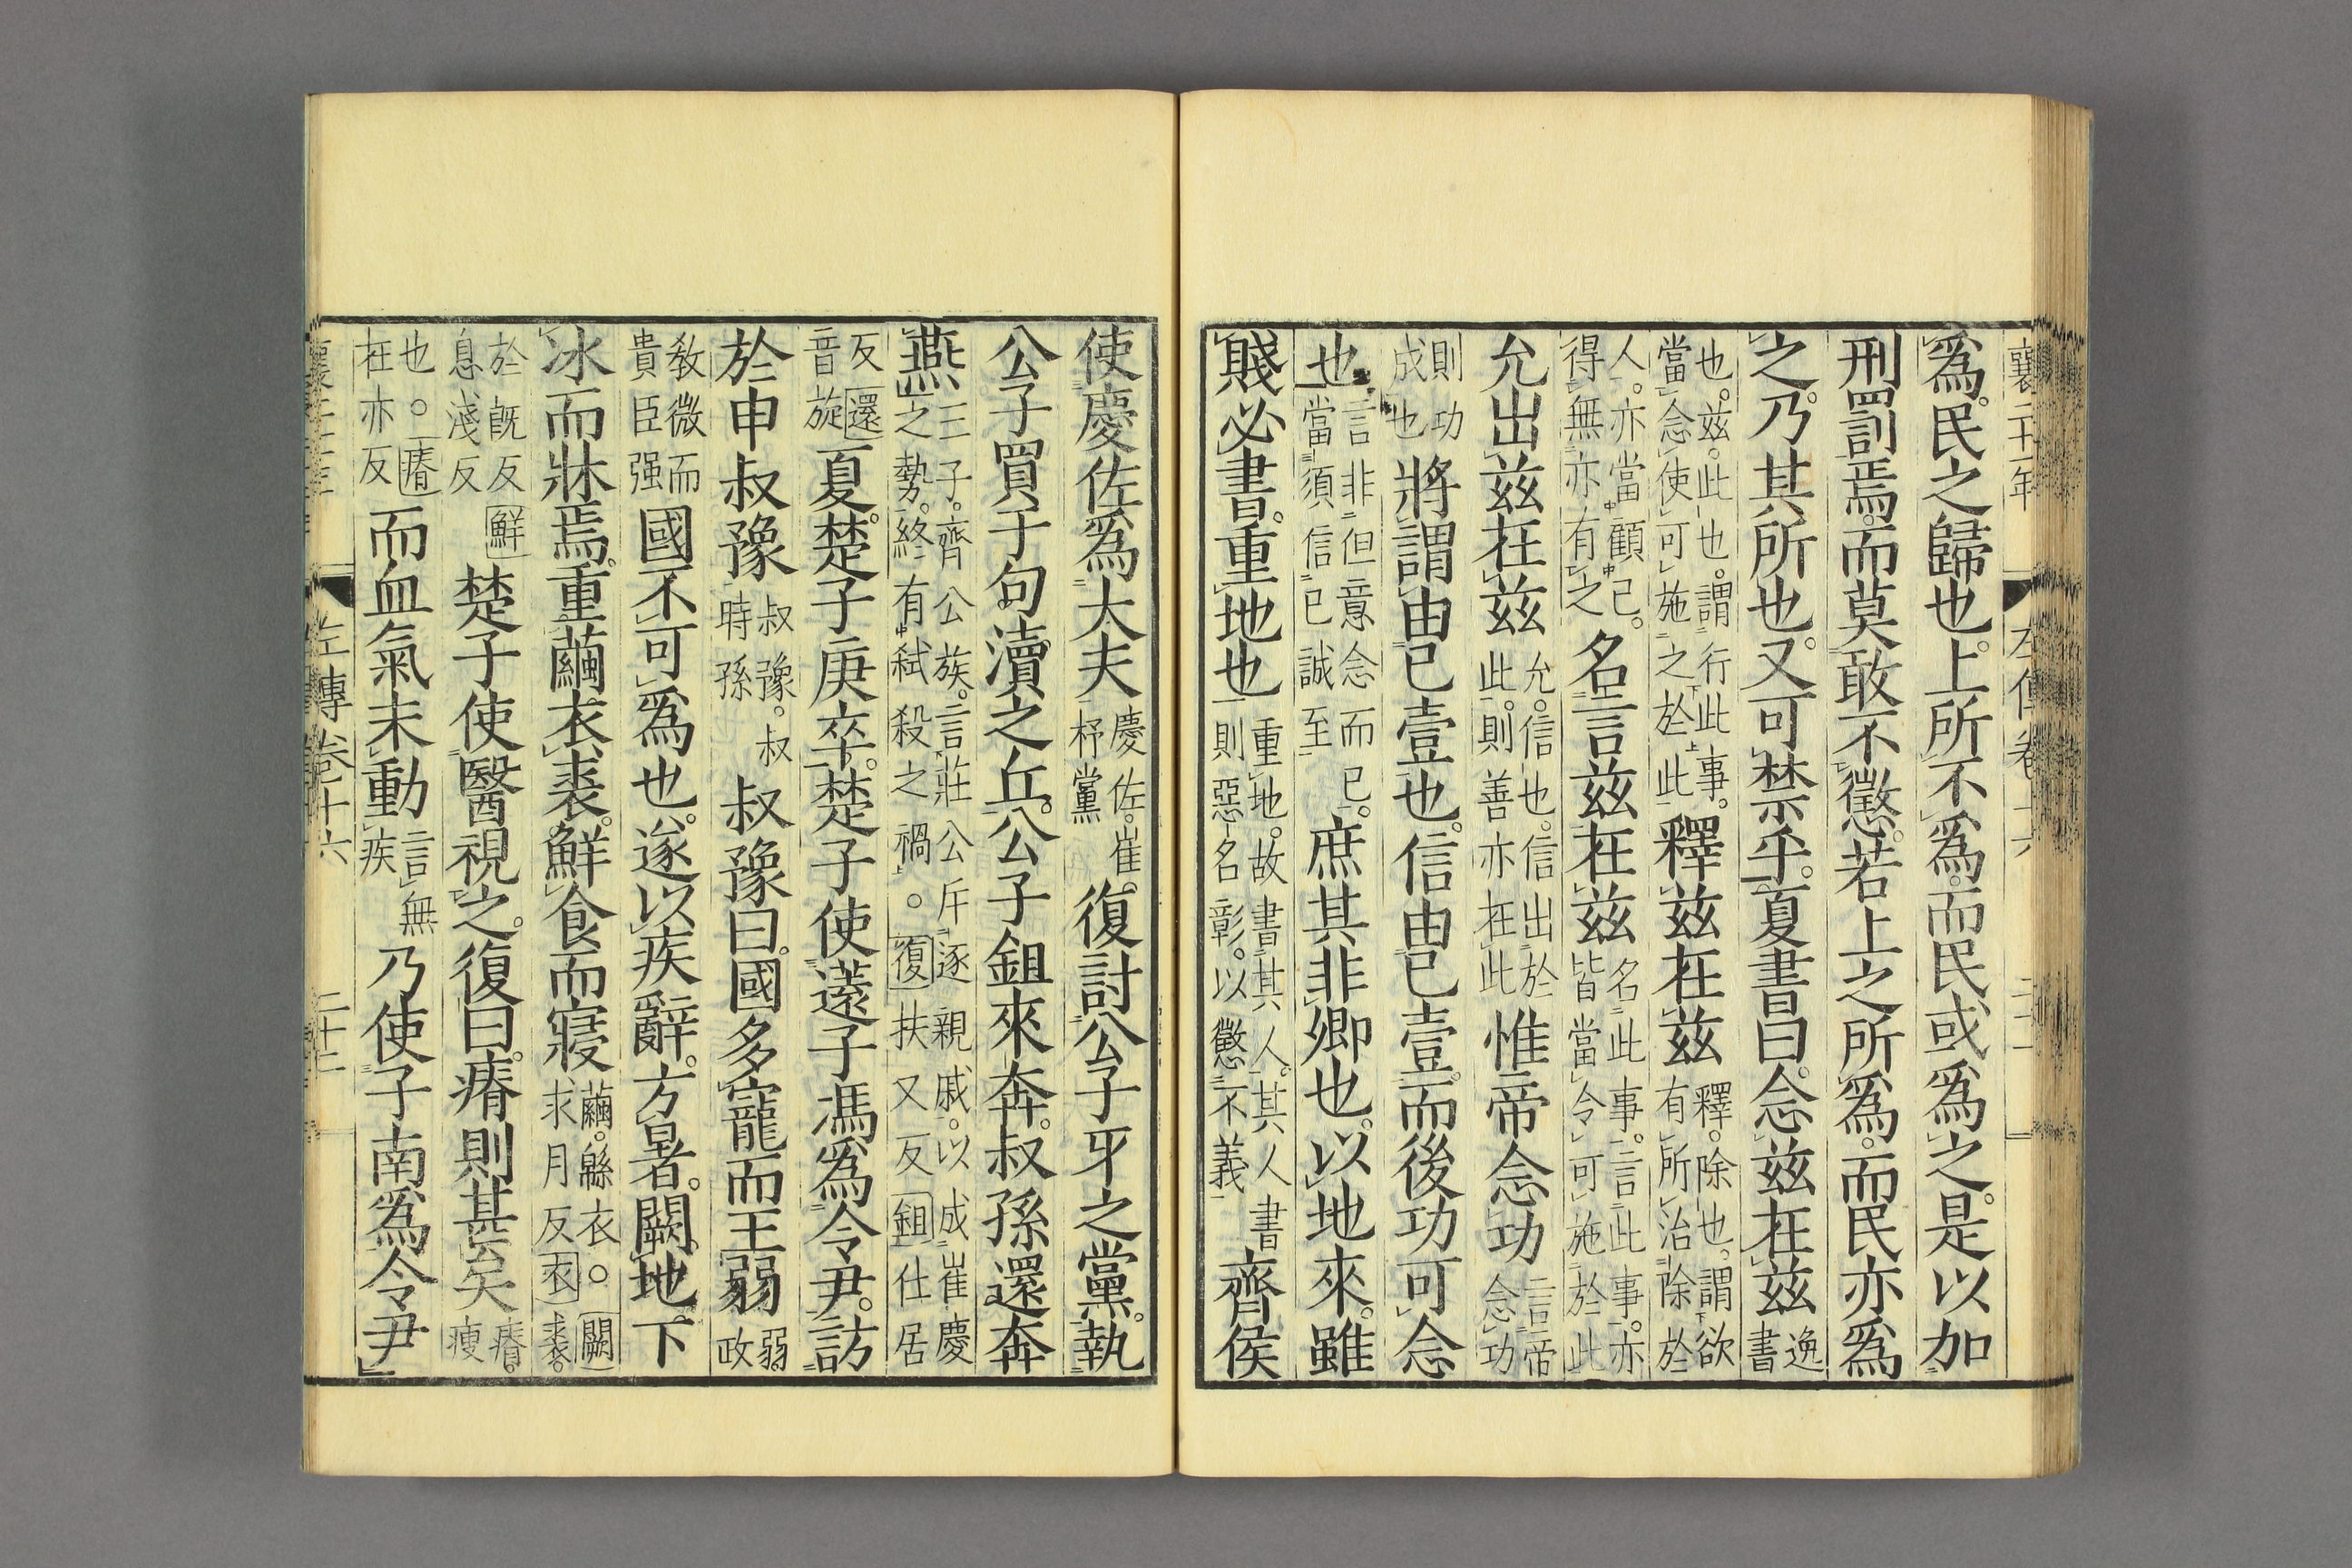 襄二十一年 左傳卷十六
爲。民之歸也。上所不爲。而民或爲之。是以加
刑罰焉。而莫敢不懲。若上之所爲。而民亦爲
之。乃其所也。又可禁乎。夏書曰。念玆在玆逸書
也。玆。此也。謂行此事。當念使可施之於此釋玆在玆釋。除也。謂欲有所治除於
人。亦當顧己。得無亦有之名言玆在玆名此事。言此事。亦皆當令可施於此
允出玆在玆允。信也。信出於此。則善亦在此惟帝念功言帝念功
則功成也將謂由己壹也。信由己壹。而後功可念
也言非但意念而已。當須信己誠至庶其非卿也。以地來。雖
賤必書。重地也重地。故書其人。其人書則惡名彰。以懲不義齊侯
使慶佐爲大夫慶佐。崔杼黨復討公子牙之黨。執
公子買于句瀆之丘。公子鉏來奔。叔孫還奔
燕三子。齊公族。言莊公斥逐親戚。以成崔慶之勢。終有弑殺之禍。○復扶又反鉏仕居
反還音旋夏。楚子庚卒。楚子使薳子馮爲令尹。訪
於申叔豫叔豫。叔時孫叔豫曰。國多寵而王弱弱。政
教微而貴臣强國不可爲也。遂以疾辭。方暑。闕地下
冰而牀焉。重繭衣裘。鮮食而寢繭。緜衣。○闕求月反衣裘。
於旣反鮮息淺反楚子使醫視之。復曰。瘠則甚矣瘠。瘦
也。○瘠在亦反而血氣未動言無疾乃使子南爲令尹
左傳卷十六 二十二